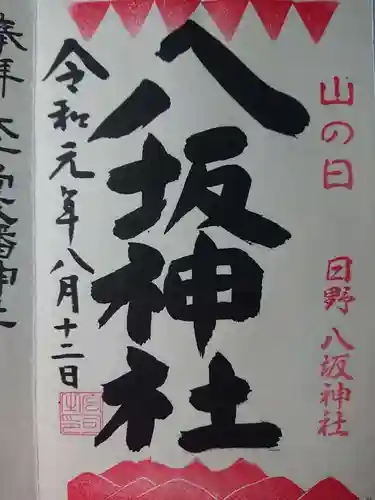 山の日
日野八坂神社
八坂神社
令和元年八月十二日
奉拝